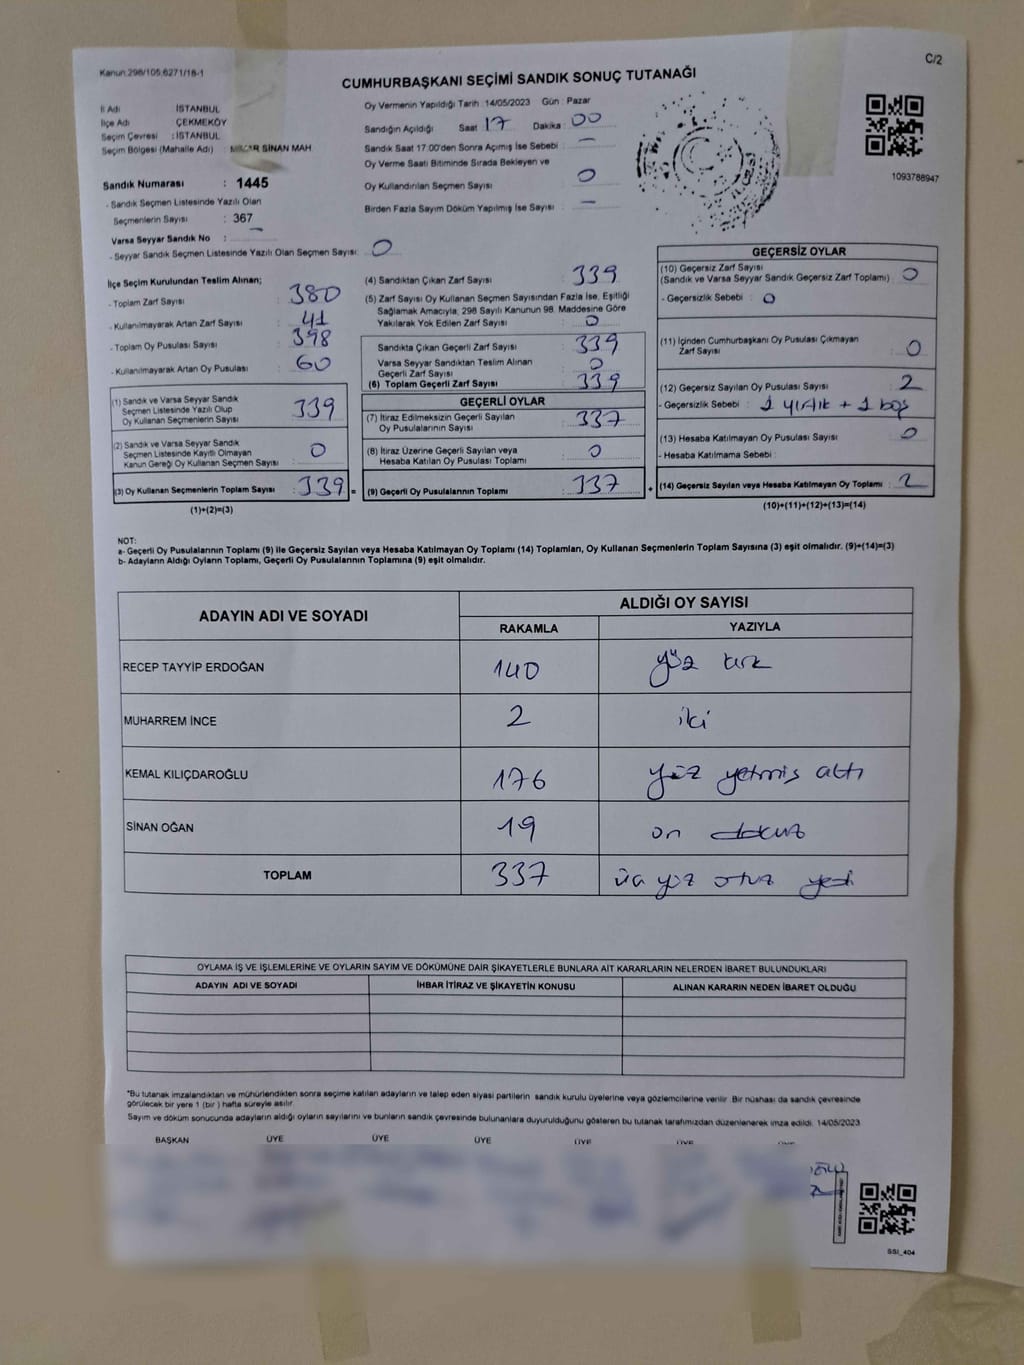 Kanun:298/105,6271/18-1
C/2
CUMHURBAŞKANI SEÇİMİ SANDIK SONUÇ TUTANAĞI
İl Adı İSTANBUL
İlçe Adı ÇEKMEKÖY
Seçim Çevresi : İSTANBUL
Seçim Bölgesi (Mahalle Adı) MİMAR SİNAN MAH
Sandık Numarası : 1445
- Sandık Seçmen Listesinde Yazılı Olan
Seçmenlerin Sayısı : 367
Varsa Seyyar Sandık No : -
- Seyyar Sandık Seçmen Listesinde Yazılı Olan Seçmen Sayısı: 0
Oy Vermenin Yapıldığı Tarih 14/05/2023 Gün : Pazar
Sandığın Açıldığı Saat 17 Dakika : 00
Sandık Saat 17.00'den Sonra Açımış İse Sebebi : -
Oy Verme Saati Bitiminde Sırada Bekleyen ve
Oy Kullandırılan Seçmen Sayısı : 0
Birden Fazla Sayım Döküm Yapılmış İse Sayısı : -
1093788947
İlçe Seçim Kurulundan Teslim Alınan;
- Toplam Zarf Sayısı : 380
- Kullanılmayarak Artan Zarf Sayısı : 41
- Toplam Oy Pusulası Sayısı : 398
- Kullanılmayarak Artan Oy Pusulası : 60
(1) Sandık ve Varsa Seyyar Sandık
Seçmen Listesinde Yazılı Olup
Oy Kullanan Seçmenlerin Sayısı : 339
(2) Sandık ve Varsa Seyyar Sandık
Seçmen Listesinde Kayıtlı Olmayan
Kanun Gereği Oy Kullanan Seçmen Sayısı : 0
(3) Oy Kullanan Seçmenlerin Toplam Sayısı : 339 =
(1)+(2)=(3)
(4) Sandıktan Çıkan Zarf Sayısı : 339
(5) Zarf Sayısı Oy Kullanan Seçmen Sayısından Fazla İse, Eşitliği
Sağlamak Amacıyla; 298 Sayılı Kanunun 98. Maddesine Göre
Yakılarak Yok Edilen Zarf Sayısı : 0
Sandıkta Çıkan Geçerli Zarf Sayısı : 339
Varsa Seyyar Sandıktan Teslim Alınan
Geçerli Zarf Sayısı : 0
(6) Toplam Geçerli Zarf Sayısı : 339
GEÇERLİ OYLAR
(7) İtiraz Edilmeksizin Geçerli Sayılan
Oy Pusulalarının Sayısı : 337
(8) İtiraz Üzerine Geçerli Sayılan veya
Hesaba Katılan Oy Pusulası Toplamı : 0
(9) Geçerli Oy Pusulalarının Toplamı : 337 +
GEÇERSİZ OYLAR
(10) Geçersiz Zarf Sayısı
(Sandık ve Varsa Seyyar Sandık Geçersiz Zarf Toplamı) : 0
- Geçersizlik Sebebi : 0
(11) İçinden Cumhurbaşkanı Oy Pusulası Çıkmayan
Zarf Sayısı : 0
(12) Geçersiz Sayılan Oy Pusulası Sayısı : 2
- Geçersizlik Sebebi : 1 yırtık + 1 boş
(13) Hesaba Katılmayan Oy Pusulası Sayısı : 0
- Hesaba Katılmama Sebebi :
(14) Geçersiz Sayılan veya Hesaba Katılmayan Oy Toplamı : 2
(10)+(11)+(12)+(13)=(14)
NOT:
a- Geçerli Oy Pusulalarının Toplamı (9) ile Geçersiz Sayılan veya Hesaba Katılmayan Oy Toplamı (14) Toplamları, Oy Kullanan Seçmenlerin Toplam Sayısına (3) eşit olmalıdır. (9)+(14)=(3)
b- Adayların Aldığı Oyların Toplamı, Geçerli Oy Pusulalarının Toplamına (9) eşit olmalıdır.
ADAYIN ADI VE SOYADI ALDIĞI OY SAYISI
RAKAMLA YAZIYLA
RECEP TAYYİP ERDOĞAN 140 yüz kırk
MUHARREM İNCE 2 iki
KEMAL KILIÇDAROĞLU 176 yüz yetmiş altı
SİNAN OĞAN 19 on dokuz
TOPLAM 337 üç yüz otuz yedi
OYLAMA İŞ VE İŞLEMLERİNE VE OYLARIN SAYIM VE DÖKÜMÜNE DAİR ŞİKAYETLERLE BUNLARA AİT KARARLARIN NELERDEN İBARET BULUNDUKLARI
ADAYIN ADI VE SOYADI İHBAR İTİRAZ VE ŞİKAYETİN KONUSU ALINAN KARARIN NEDEN İBARET OLDUĞU
*Bu tutanak imzalandıktan ve mühürlendikten sonra seçime katılan adayların ve talep eden siyasi partilerin sandık kurulu üyelerine veya gözlemcilerine verilir. Bir nüshası da sandık çevresinde
görülecek bir yere 1 (bir ) hafta süreyle asılır.
Sayım ve döküm sonucunda adayların aldığı oyların sayılarını ve bunların sandık çevresinde bulunanlara duyurulduğunu gösteren bu tutanak tarafımızdan düzenlenerek imza edildi. 14/05/2023
BAŞKAN ÜYE ÜYE ÜYE ÜYE ÜYE
SSI_404